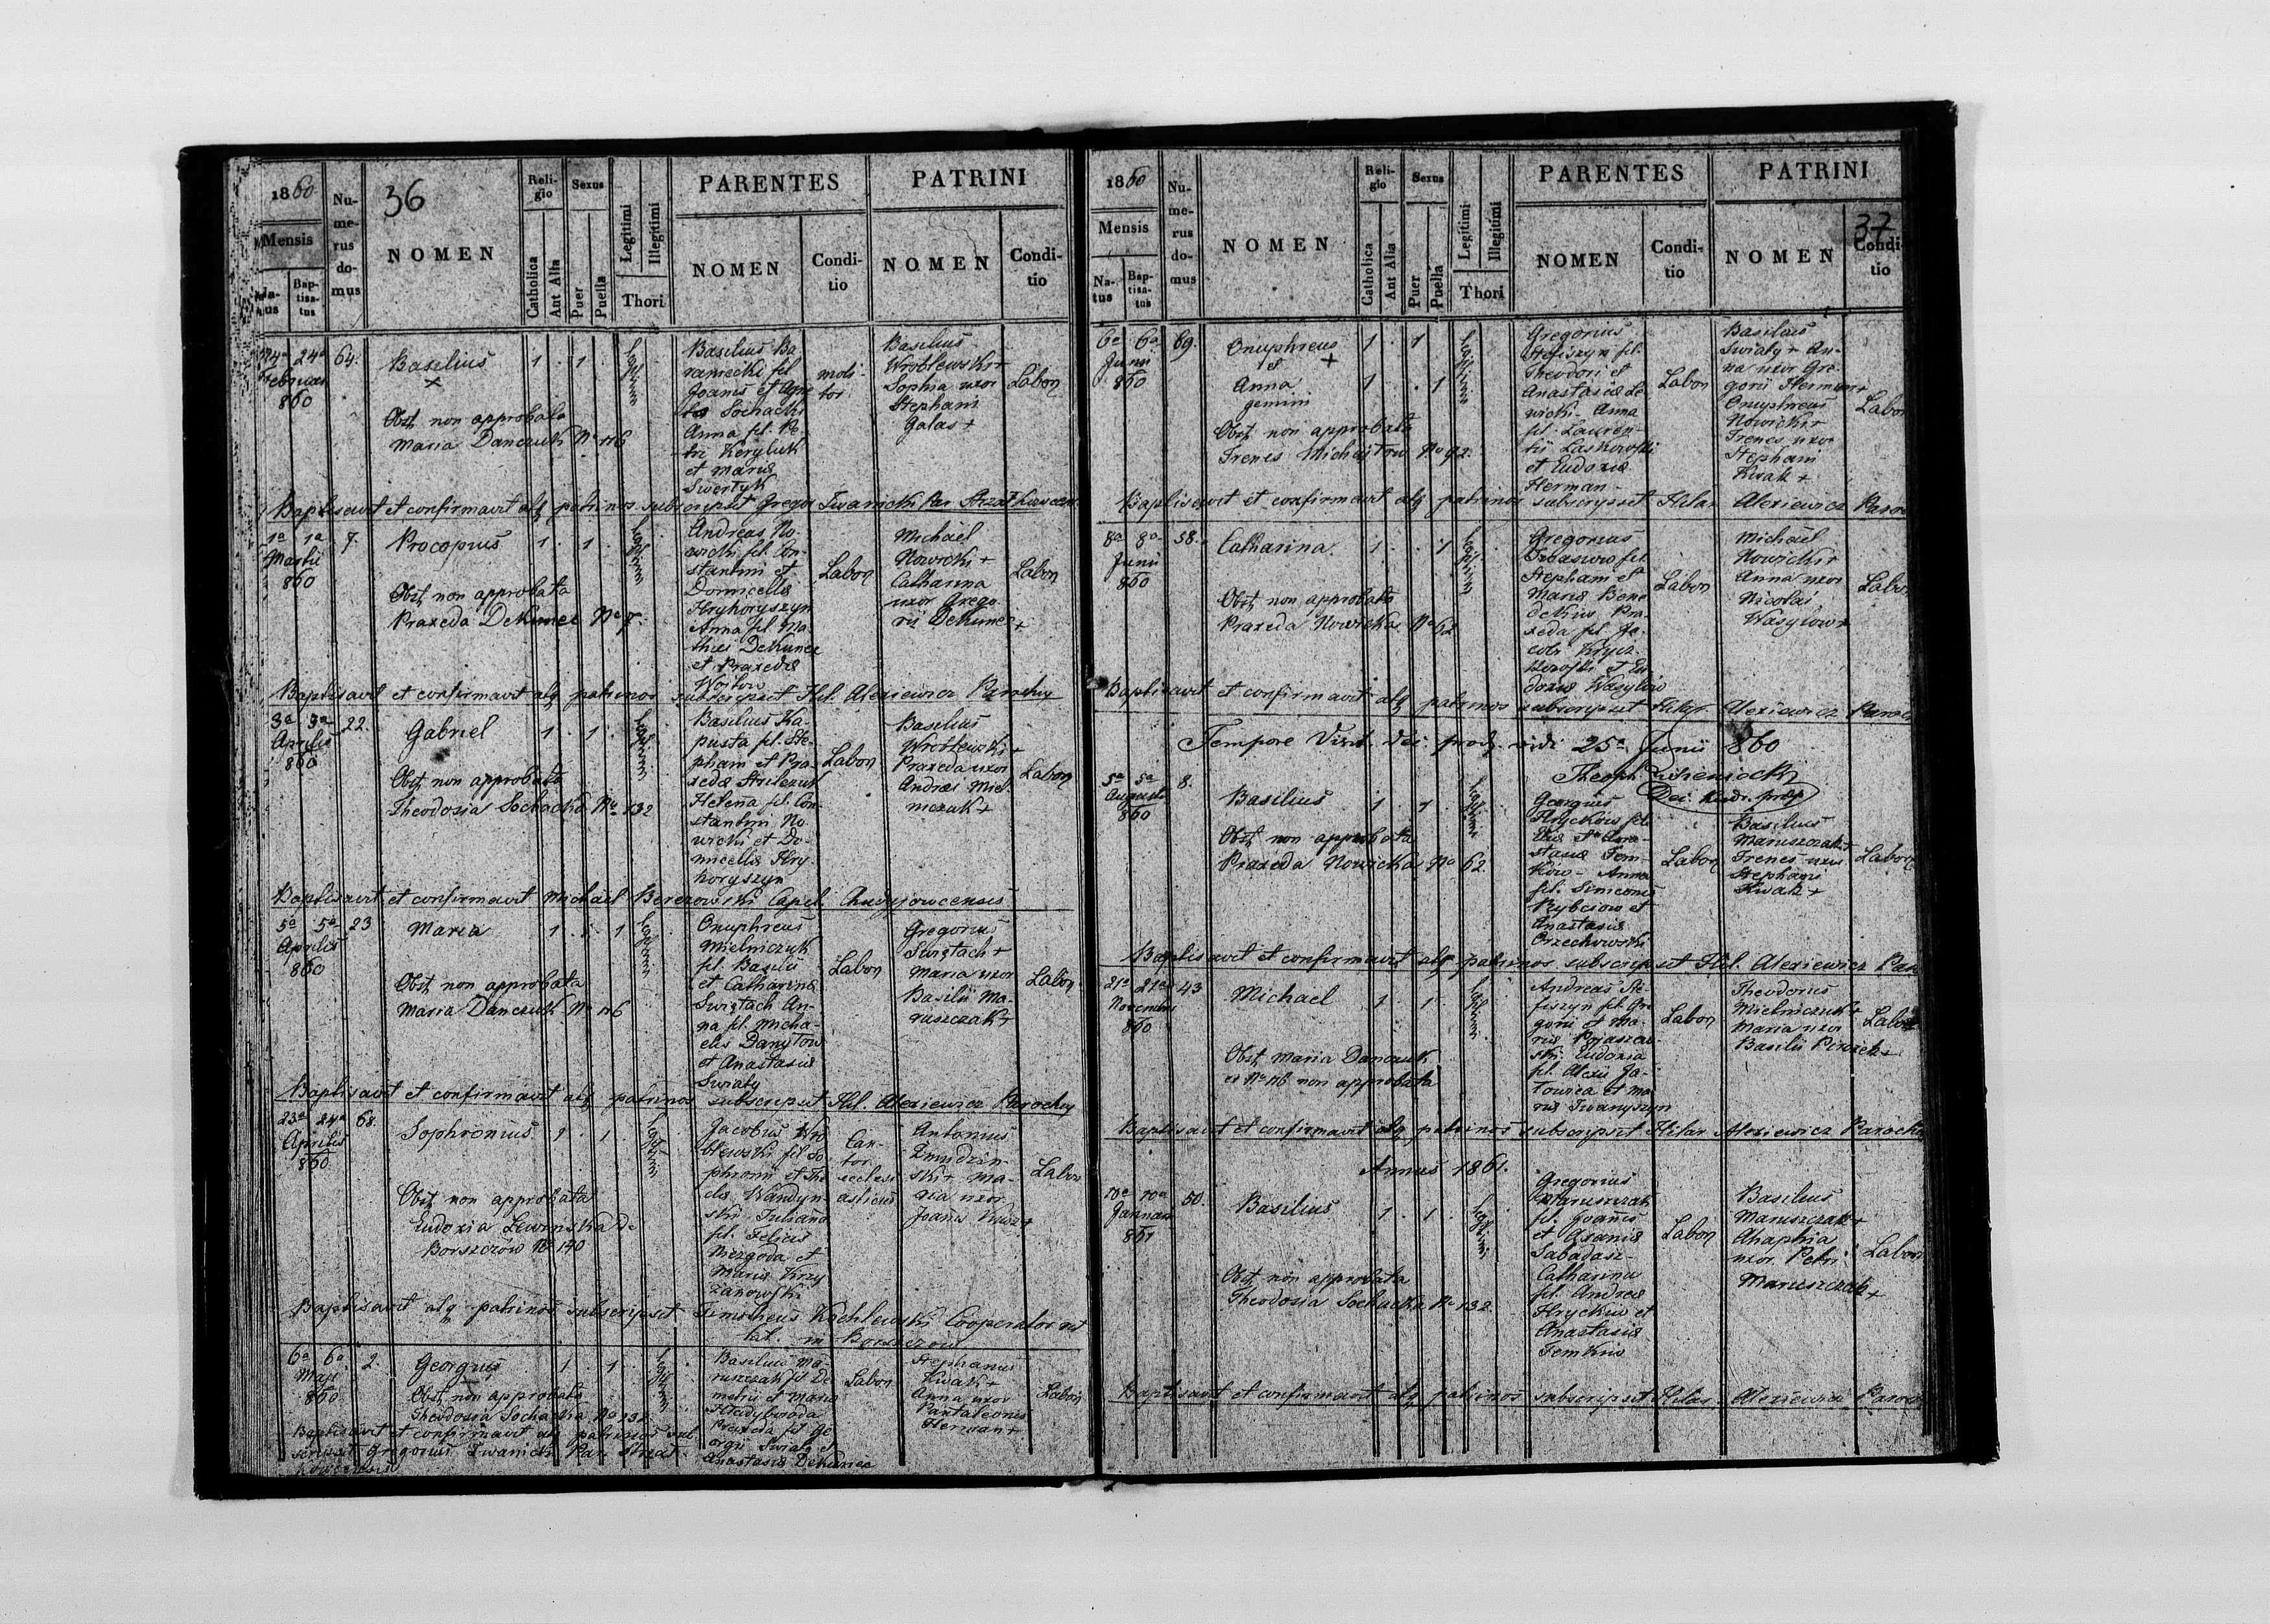 1860
36
Numerus domus
NOMEN
Religio
Sexus
Legitimi
Illegitimi
PARENTES
PATRINI
Mensis
Baptisatus
Catholica
Aut Alia
Puer
Puella
Thori
NOMEN
Conditio
NOMEN
Conditio
24a 64. Basilius 1 . 1 .
Februar
860
Obst non approbata
Maria Danczuk No 116
Basilius Ba
raniecki fil
Joannis et Agne
Sochacki
Anna fil. Pe
tri Keryluk
et Mariae
Swertyk
moli
tor
Basilius
Wroblewski +
Sophia uxor
Stephani
Galas +
Labor
Baptisavit et confirmavit atq patrinos subscripsit Gregor Iwanicki Par
1a 1a 7. Procopius 1 . 1 .
Martii
860
Obst non approbata
Praxeda Dekunec No 7.
Andreas No-
wicki fil. Con-
stantini et
Domicellae
Hryhoryszyn
Anna fil. Ma
thiei Dekunec
et Praxedae
Woitow
Labor
Michael
Nowicki +
Catharina
uxor Grego
rii Dekunec +
Labor
Baptisavit et confirmavit atq patrinos subscripsit Hil. Alexiewicz Parochus
3a 3a 22. Gabriel 1 . 1 .
Aprilis
860
Obst non approbata
Theodosia Sochacka No 132
Basilius Ka-
pusta fil. Ste-
phani et Pra-
xedae Strilczuk
Helena fil. Con-
stantini No-
wicki et Do-
micellae Hry-
horyszyn
Labor
Basilius
Wroblewski +
Praxeda uxor
Andreae Miel-
niczuk +
Labor
Baptisavit et confirmavit Michael Berezowski Capel. Chudyjowcensis
5a 5a 23 Maria 1 . . 1
Aprilis
860
Obst non approbata
Maria Danczuk No 116
Onuphreus
Mielniczuk
fil. Basilii
et Catharinae
Swiętach An-
na fil. Micha-
elis Danyłow
et Anastasiae
Swiaty
Labor
Gregorius
Swiętach +
Maria uxor
Basilii Ma-
ruszczak +
Labor
Baptisavit et confirmavit atq patrinos subscripsit Hil. Alexiewicz Parochus
23a 24a 68. Sophronius 1 . 1 .
Aprilis
860
Obst non approbata
Eudoxia Lewinska de
Borszczow No 140
Jacobus Wro
blewski fil So
phronii et The
clae Wandyn-
ski Juliana
fil. Felicis
Niezgoda et
Mariae Krzy
zanowski
Can-
tor
ecclesi
asticus
Antonius
Zmudzin-
ski + Ma-
ria uxor
Joannis
Labor
Baptisavit atq patrinos subscripsit Timotheus Kochlewski Cooperator rit
lat. in Borszczow
6a 6a 2. Georgius 1 . 1 .
Maji
860
Obst non approbata
Theodosia Sochacka No 132
Basilius Ma-
ruszczak fil De
metrii et Mariae
Hladyboroda
Praxeda fil Ge
orgii Swiaty et
Anastasiae Dekunec
Labor
Stephanus
Kwak +
Anna uxor
Pantaleonis
Herman +
Labor
Baptisavit et confirmavit atq patrinos sub
scripsit Gregorius Iwanicki Par
1860
37
Mensis
Natus
Baptisatus
Numerus domus
NOMEN
Religio
Catholica
Aut Alia
Sexus
Puer
Puella
Legitimi
Illegitimi
Thori
PARENTES
NOMEN
Conditio
PATRINI
NOMEN
Conditio
6a 6a 69. Onuphreus 1 . 1
Junii et
860 Anna 1 . . 1
gemini
Obst non approbata
Irenes No 92.
Gregorius
Stefiszyn fil.
Theodori et
Anastasiae Le
wicki - Anna
fil. Lauren-
tii Laskowski
et Eudoxiae
Herman -
Labor
Basilius
Swiaty + An-
na uxor Gre-
gorii Herman +
Onuphreus
Nowicki +
Irenes uxor
Stephani
Kwak +
Labor
Baptisavit et confirmavit atq patrinos subscripsit Hilar Alexiewicz Paro
8a 8a 58. Catharina 1 . . 1
Junii
860
Obst non approbata
Praxeda Nowicka No 62
Gregorius
fil.
Stephani et
Mariae Bene
dekiw Pra-
xeda fil. Ja-
cobi Krycz-
kowski et Eu-
doxiae Wasyliw
Labor
Michael
Nowicki +
Anna uxor
Nicolai
Wasylow +
Labor
Baptisavit et confirmavit atq patrinos subscripsit Hilar. Alexiewicz Paroch
Tempore Visit. Dei. prod. vidi 25a Junii 860
Theoph.
5a 5a 8. Basilius 1 . 1
Augusti
860
Obst non approbata
Praxeda Nowicka No 62.
Georgius
Hryckow fil.
Iliae et Ana-
stasiae Tem-
kiw - Anna
fil. Simeonis
Rybciow et
Anastasiae
Orzechowski
Labor
Basilius
Maruszczak +
Irenes uxor
Stephani
Kwak +
Labor
Baptisavit et confirmavit atq patrinos subscripsit Hil. Alexiewicz Par
21a 21a 43 Michael 1 . 1 .
Novembris
860
Obst Maria Danczuk
ex No 116 non approbata
Andreas Ste-
fiszyn fil. Gre
gorii et Ma-
riae
ski Eudoxia
fil. Alexii Ja-
towica et Ma
riae Iwanyszyn
Labor
Theodorus
Mielniczuk +
Maria uxor
Basilii
Labor
Baptisavit et confirmavit atq patrinos subscripsit Hilar Alexiewicz Parochus
Annus 1861.
10a 10a 50. Basilius 1 . 1 .
Januarii
861
Obst non approbata
Theodosia Sochacka No 132.
Gregorius
Maruszczak
fil. Joannis
et Axaniae
Sabadasz -
Catharina
fil. Andreae
Hryckiw et
Anastasiae
Temkiw
Labor
Basilius
Maruszczak +
Ahaphia
uxor Petri
Maruszczak +
Labor
Baptisavit et confirmavit atq patrinos subscripsit Hilar. Alexiewicz Paroch